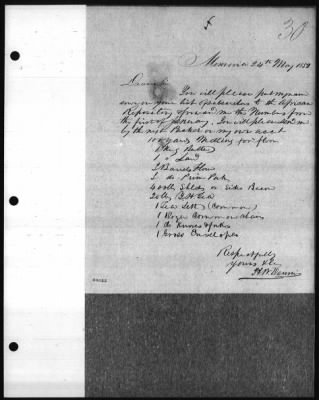 30
Monrovia 24th May 1852
Dear Sir
You will please put my name
down on your list of subscribers to the African
Repository & forward me the Numbers from
the first of January, You will please send me
by the next Packet on my own acct
100 yards Matting for floor
1 Keg Butter
1 " Lard
2 Barrels Flour
2 do Prime Pork
400 lbs Shldrs or Sides Bacon
20 lbs Tea
1 Tea Sett (Common)
1 Dozen Common chairs
1 do Knives & forks
1 Gross Envelopes
Respectfully
Yours &c
H W Dennis